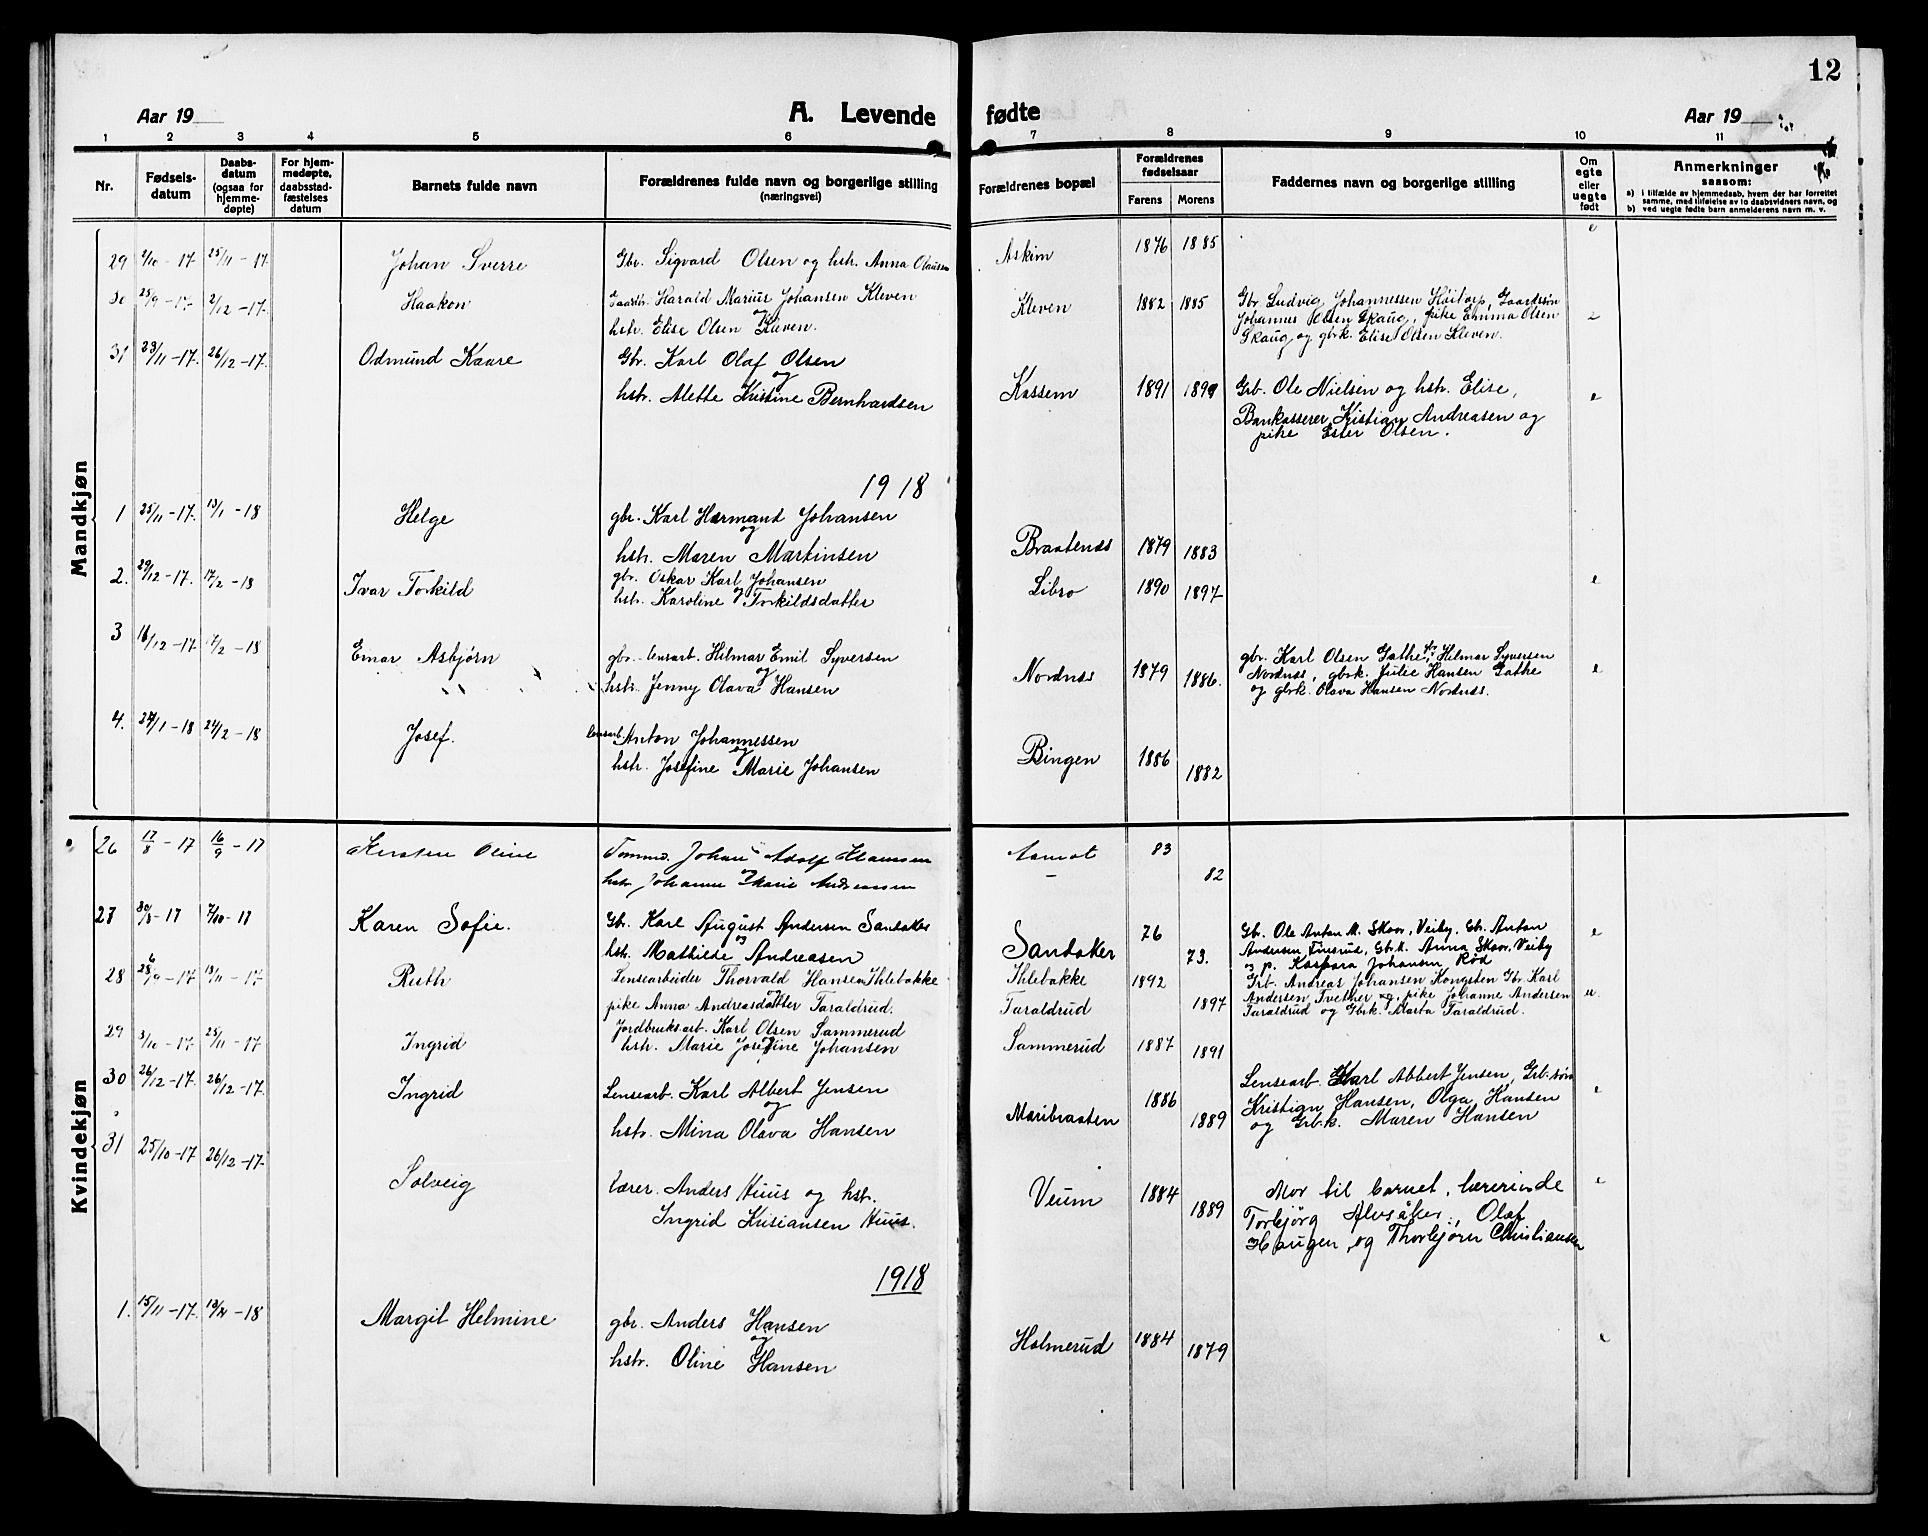 12
Aar 19
A. Levende
fødte
Aar 19
1 2 3 4 5 6 7 8 9 10 11
Nr.
Fødsels-
datum
Daabs-
datum
(ogsaa for
hjemme-
døpte)
For hjem-
medøpte,
daabsstad-
fæstelses
datum
Barnets fulde navn
Forældrenes fulde navn og borgerlige stilling
(næringsvei)
Forældrenes bopæl
Forældrenes
fødselsaar
Farens
Morens
Faddernes navn og borgerlige stilling
Om
egte
eller
uegte
født
Anmerkninger
saasom:
a) i tilfælde av hjemmedaab, hvem der har forrettet
samme, med tilføielse av to daabsvidners navn, og
b) ved uegte fødte barn anmelderens navn m. v.
Mandkjøn
29 2/10 - 17 25/11 - 17. Johan Sverre Gbr. Sigvard Olsen og hstr. Anna Olaussen Askim 1876 1885 e
30 25/9 - 17. 2/12 - 17. Haakon Gaardbr. Harald Marius Johansen Kleven Kleven 1882 1885 Gbr. Ludvig Johannessen Høitorp, Gaardssøn
og
hstr. Elise Olsen Kleven. Johannes Olsen Skaug, pike Emma Olsen
Skaug og gbrk. Elise Olsen Kleven.
31 23/11 - 17. 26/12 - 17. Odmund Kaare Gbr. Karl Olaf Olsen
og
hstr. Alette Kristine Bernhardsen Kassem 1891 Grb. Ole Nielsen og hstr. Elise, e
Bankasserer Kristian Andreasen og
pike Ester Olsen.
1918
1 25/11 - 17. 13/1 - 18 Helge gbr. Karl Hermand Johansen
og
hstr. Maren Martinsen Braatenes 1879 1883
2. 29/12 - 17. 17/2 - 18 Ivar Torkild gbr. Oskar Karl Johansen Libro 1890 1897 e
og
hstr. Karoline Torkildsdatter
3 16/12 - 17. 17/2 - 18 Einar Asbjørn gbr. - lensarb. Hilmar Emil Syversen
og
hstr. Jenny Olava Hansen Nordnes 1879 1886. gbr. Karl Olsen Gathe, Hilmar Syversen e
Nordnes, gbrk. Julie Hansen Gathe
og gbrk. Olava Hansen Nordnes.
4. 24/1 - 18 24/2 - 18 Josef. lensarb. Anton Johannessen
og
hstr. Josefine Marie Johansen Bingen 1886 1882
Kvindekjøn
26 17/8 - 17 16/9 - 17 Kirsten Oline Tømmerm. Johan Adolf Hansen Aamot 83
hstr. Johanne Marie Andreassen 82
27 30/8 - 17 7/10 - 17 Karen Sofie. Gb. Karl August Andersen Sandaker
og
hstr. Mathilde Andreasen Sandaker 76 73. Gb. Ole Anton M. Skor, Veiby, Gb. Anton e
Andersen Finsrud, Gb.k. Anna Skor, Veiby
og p. Kaspara Johansen Rød
28 28/9 - 17. 18/11 - 17. Ruth Lensearbeider Thorvald Hansen Ihlebakke Ihlebakke 1892 Grb. Andreas Johansen Kongsten Gbr. Karl
pike Anna Andreasdatter Taraldrud. Taraldrud 1897 Andersen Tvether og pike Johanne Andersen u.
Taraldrud og Gbrk. Marta Taraldrud.
29 3/10 - 17. 25/11 - 17 Ingrid Jordbruksarb. Karl Olsen Sammerud Sammerud 1887
og
hstr. Marie Josefine Johansen 1891
30 26/12 - 17. 26/12 - 17. Ingrid Lensearb. Karl Albert Jensen
og
hstr. Mina Olava Hansen Maribraaten 1886 1889 Lensearb. Karl Albert Jensen, Grb. søn e
Kristian Hansen, Olga Hansen
og Grb.k. Maren Hansen
31 25/10 - 17 26/12 - 17. Solveig lærer. Anders Huus og hstr.
Ingrid Kristiansen Huus. Veum 1884 1889 Mor til barnet, lærerinde e
Torbjørg Alvsåker, Olaf
Haugen, og Thorbjørn Christiansen
1918
1. 15/11 - 17. - 18 Margit Helmine gbr. Anders Hansen
og
hstr. Oline Hansen Holmerud 1884 1879 e